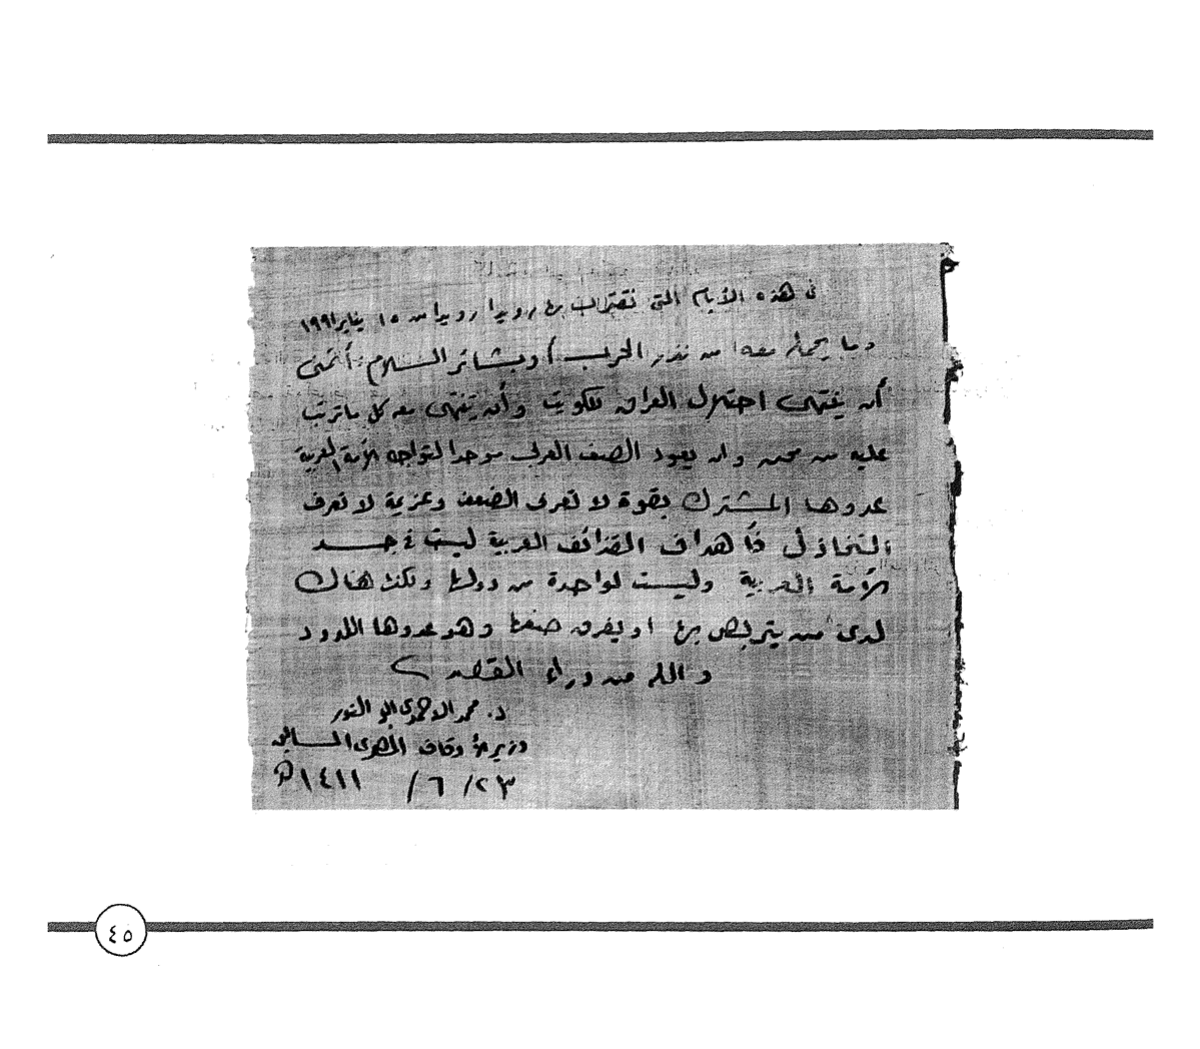 فى هذه الأيام التى نقترب بها رويدا رويدا من ١٥ يناير ١٩٩١
وما يحمله معه من نذر الحرب أو بشائر السلام، أتمنى
أن ينتهى احتلال العراق للكويت وأن ينتهى معه كل ما ترتب
عليه من محن وأن يعود الصف العربى موحدا لتواجه الأمة العربية
عدوها المشترك بقوة لا تعرف الضعف وعزيمة لا تعرف
التخاذل فأهداف القذائف العربية ليست فى جسد
الأمة العربية وليست لواحدة من دولها ولكن هناك
لدى من يتربص بها أو يفرق صفها وهو عدوها اللدود
والله من وراء القصد
د. محمد الأحمدى أبو النور
وزير الأوقاف المصرى السابق
٢٣ / ٦ / ١٤١١ هـ
٤٥